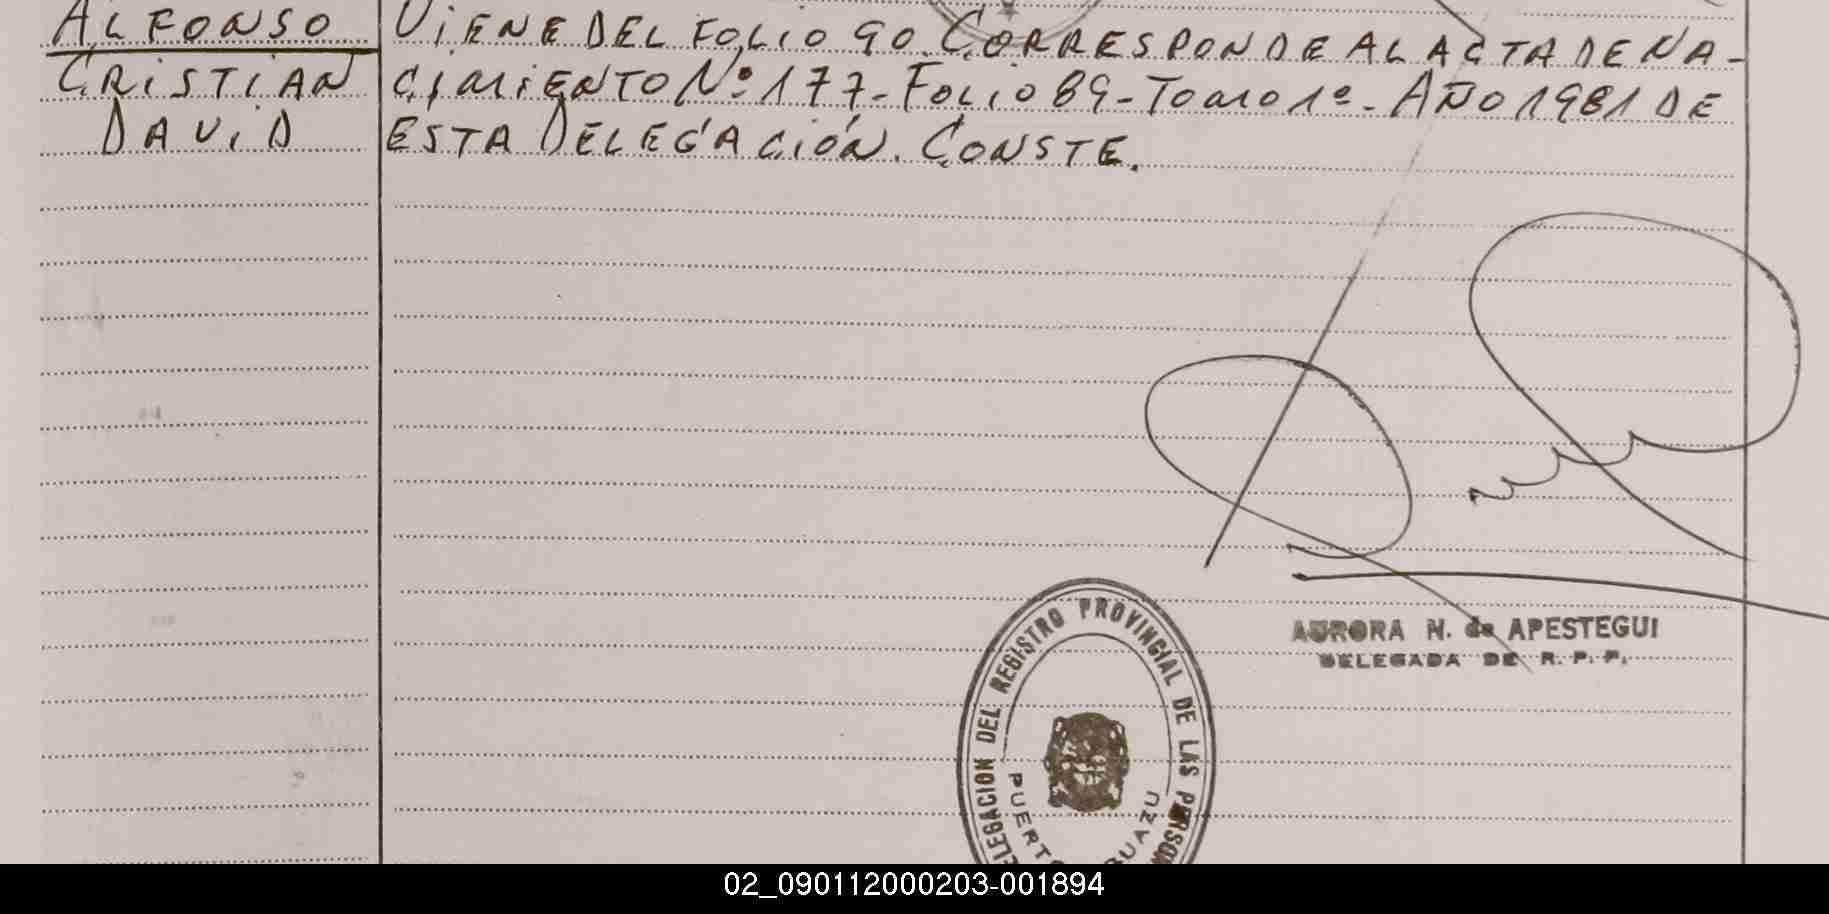 ALFONSO
CRISTIAN
DAVID
VIENE DEL FOLIO 90. CORRESPONDE AL ACTA DE NA-
CIMIENTO Nº 177- FOLIO 89- TOMO 1º- AÑO 1981 DE
ESTA DELEGACIÓN. CONSTE.
AURORA N. de APESTEGUI
DELEGADA DE R. P. P.
DELEGACION DEL REGISTRO PROVINCIAL DE LAS PERSON
PUERTO GUAZU
02_090112000203-001894